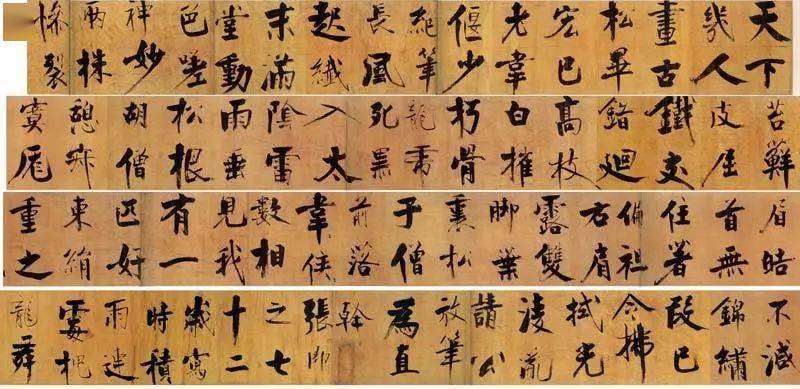 天下
幾人
畫古
松畢
宏已
老韋
偃少
絕筆
長風
起纖
末滿
堂動
色嗟
神妙
兩株
慘裂
苔蘚
皮屈
鐵交
錯迴
高枝
白摧
朽骨
龍虎
死黑
入太
陰雷
雨垂
松根
胡僧
憩寂
寞厖
眉皓
首無
住著
偏袒
右肩
露雙
脚葉
裏松
子僧
前落
韋侯
數相
見我
有一
匹好
東絹
重之
不減
錦繡
段已
令拂
拭光
凌亂
請公
放筆
為直
幹
張即
之七
十二
歲寫
時積
雨
龍舞